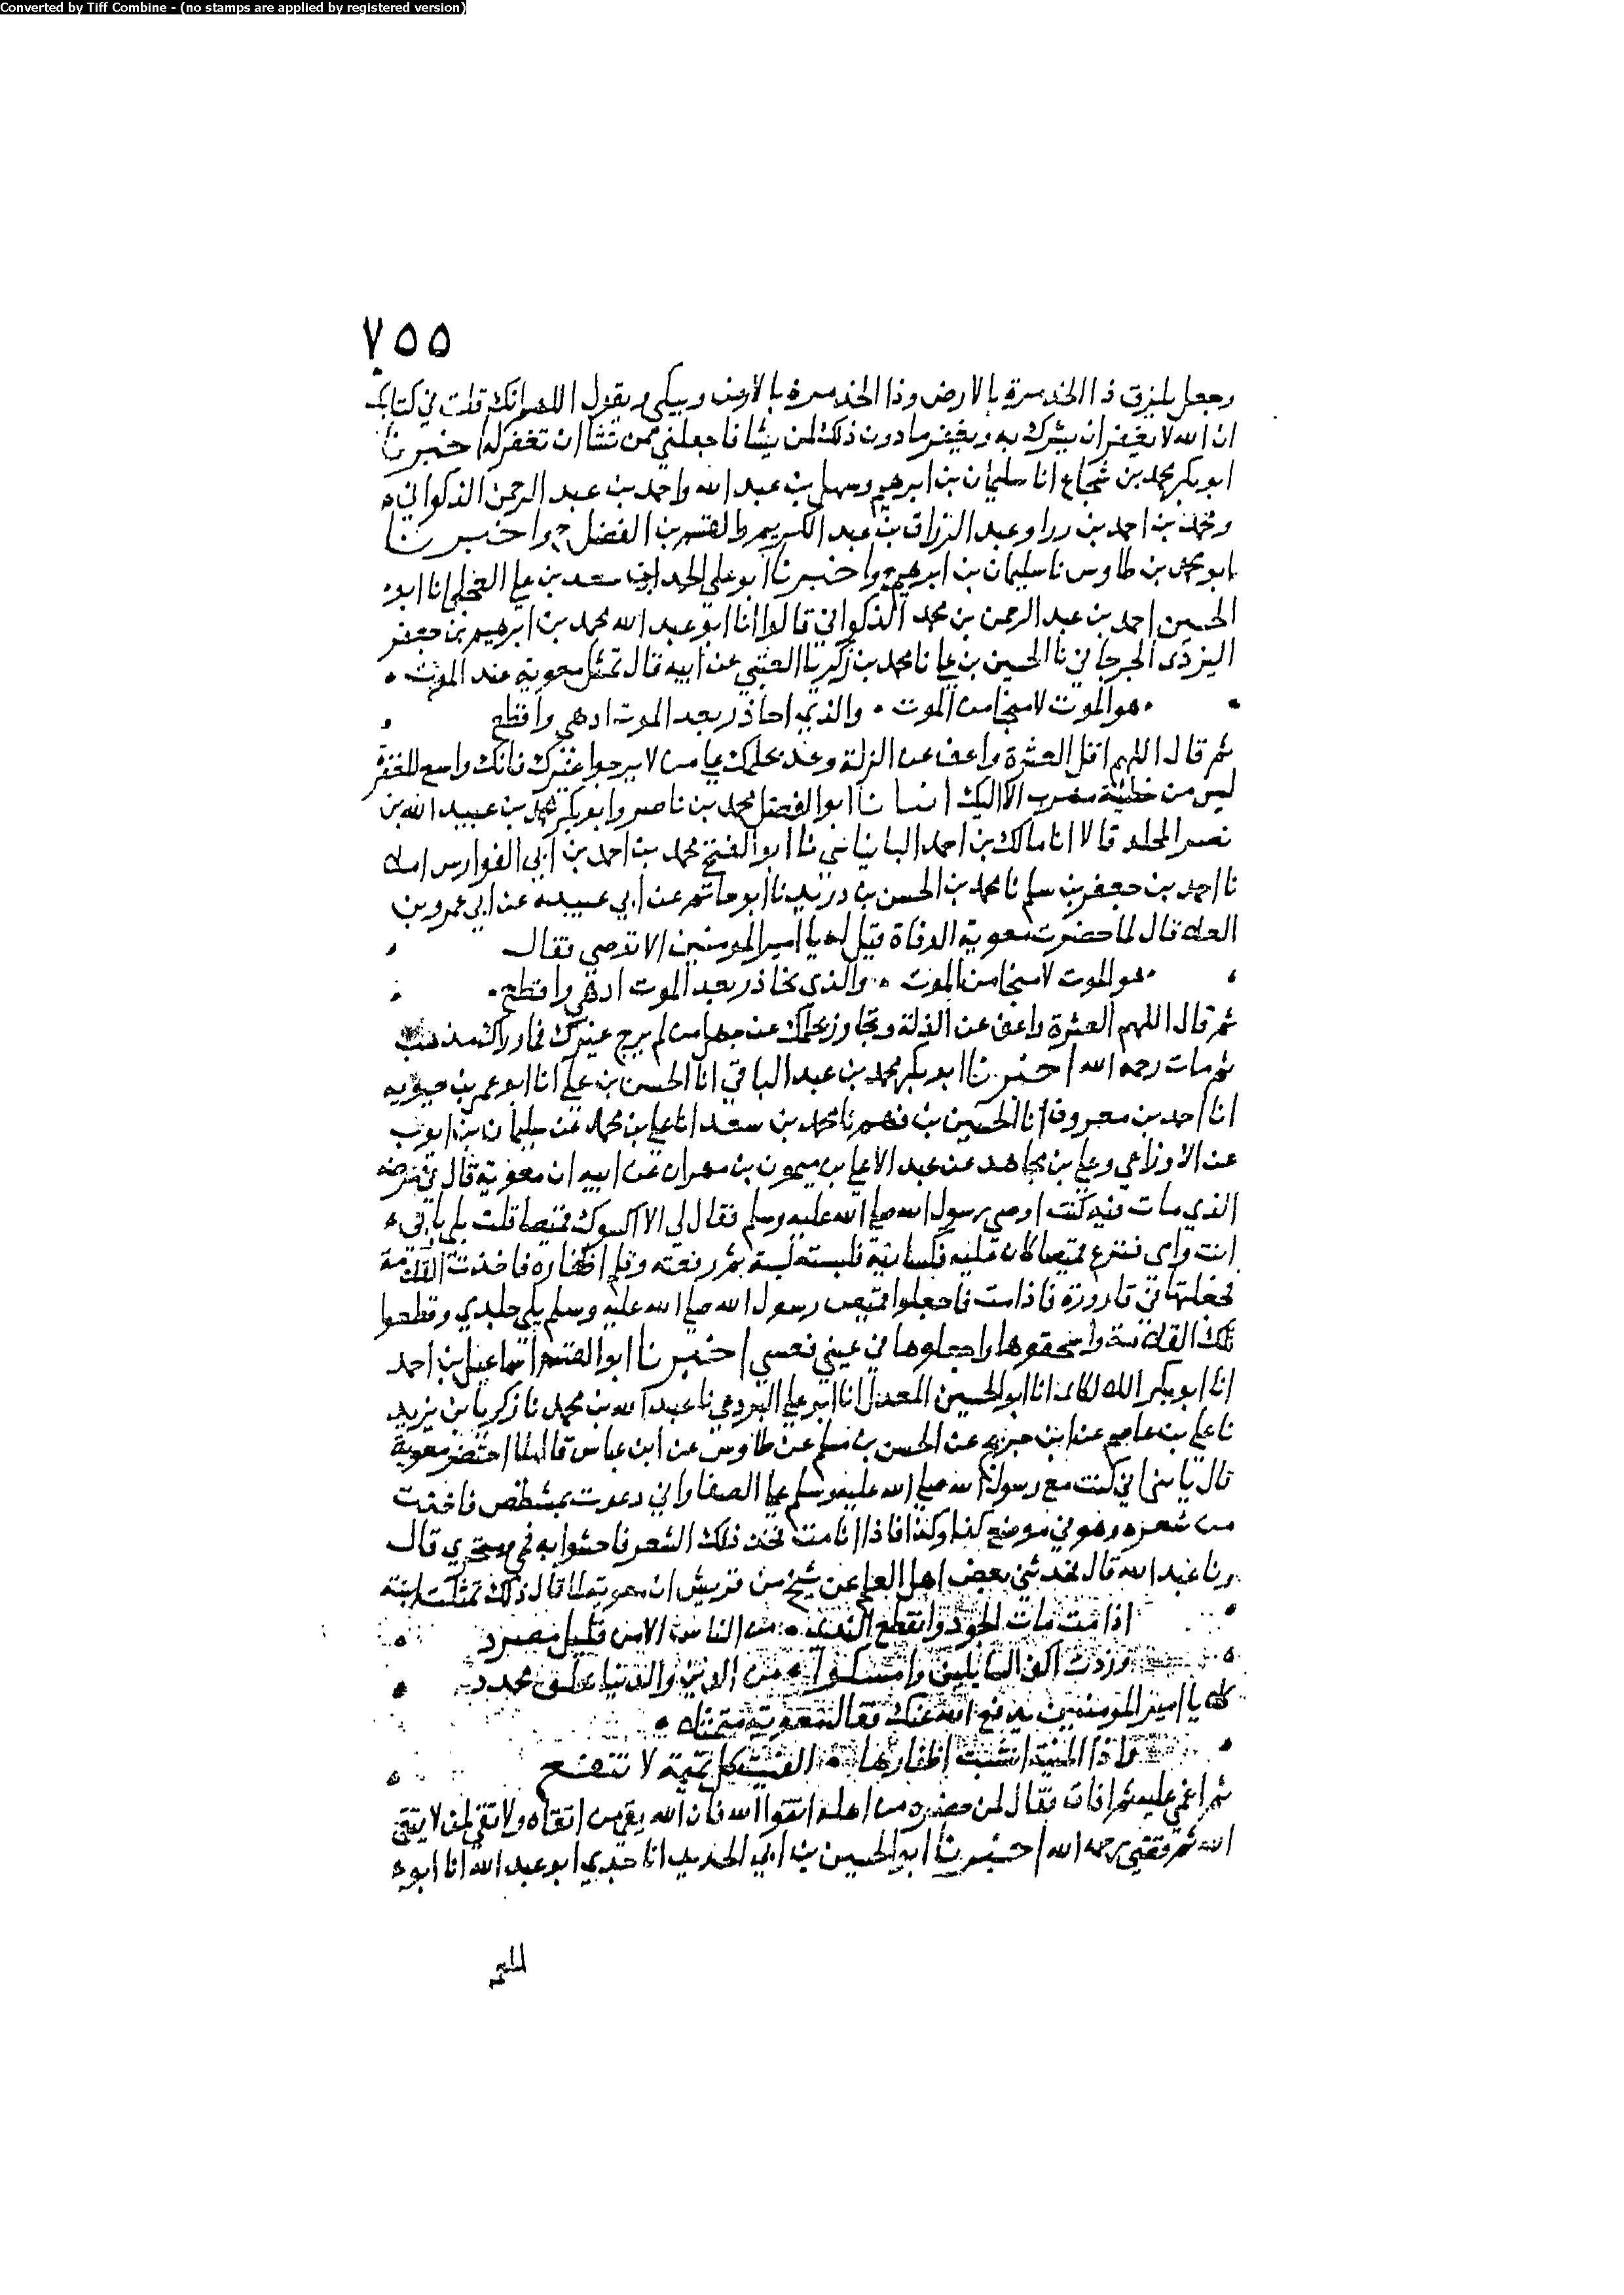 Converted by Tiff Combine - (no stamps are applied by registered version)
٧٥٥
وجعل يلزق ذا الخد مرة بالارض وذا الخد مرة بالارض ويبكي ويقول اللهم انك قلت في كتابك
ان الله لا يغفر ان يشرك به ويغفر ما دون ذلك لمن يشا فاجعلني ممن تشا ان تغفر له اخبرنا
ابو بكر محمد بن شجاع انا سليمان بن ابرهيم وسهل بن عبد الله واحمد بن عبد الرحمن الذكواني
ومحمد بن احمد بن ررا وعبد الرزاق بن عبد الكريم والقسم بن الفضل ح واخبرنا
ابو محمد بن طاوس نا سليمان بن ابرهيم واخبرنا ابو علي الحداد سعد بن علي انا ابو
الحسين احمد بن عبد الرحمن بن محمد الذكواني قالوا انا ابو عبد الله محمد بن ابرهيم بن جعفر
اليزدى الجرجاني نا الحسين بن علي نا محمد بن زكريا العتبي عن ابيه قال تمثل معوية عند الموت
هو الموت لا منجا من الموت والذي احاذر بعد الموت ادهى وافظع
ثم قال اللهم اقل العثرة واعف عن الزلة وعد بحلمك على من لا يرجوا غيرك فانك واسع المغفرة
ليس من خطيئة مهرب الا اليك انبانا ابو الفضل محمد بن ناصر وابو بكر محمد بن عبيد الله بن
نصر المجلد قالا انا مالك بن احمد البانياسي نا ابو الفتح محمد بن احمد بن ابي الفوارس املا
نا احمد بن جعفر بن سلم نا محمد بن الحسن بن دريد نا ابو حاتم عن ابي عبيده عن ابي عمرو بن
العلا قال لما حضرت معوية الوفاة قيل له يا امير المومنين الا توصي فقال
هو الموت لا منجا من الموت والذي نحاذر بعد الموت ادهى وافظع
ثم قال اللهم العثرة واعف عن الزلة وتجاوز بحلمك عن جهل من لم يرج غيرك فما وراك مذهب
ثم مات رحمه الله اخبرنا ابو بكر محمد بن عبد الباقي انا الحسن بن علي انا ابو عمر بن حيويه
انا احمد بن معروف انا الحسين بن فهم نا محمد بن سعد انا علي بن محمد عن سليمان بن ايوب
عن الاوزاعي وعلي بن مجاهد عن عبد الاعلى بن ميمون بن مهران عن ابيه ان معوية قال في مرضه
الذي مات فيه كنت اوضي رسول الله صلى الله عليه وسلم فقال لي الا اكسوك قميصا قلت بلى بابي
انت وامى فنزع قميصا كان عليه فكسانيه فلبسته لبسة ثم رفعته وقلم اظفاره فاخذت القلامة
فجعلتها في قارورة فاذا مت فاجعلوا قميص رسول الله صلى الله عليه وسلم يلي جلدي وقطعوا
تلك القلامة واسحقوها واجعلوها في عيني فعسي اخبرنا ابو القسم اسماعيل بن احمد
انا ابو بكر اللالكائى انا ابو الحسين المعدل انا ابو علي البردعي نا عبد الله بن محمد نا زكريا بن يزيد
نا علي بن عاصم عن ابن جريج عن الحسن بن مسلم عن طاوس عن ابن عباس قال لما احتضر معوية
قال يا بنى اني كنت مع رسول الله صلى الله عليه وسلم على الصفا واني دعوت بمشقص فاخذت
من شعره وهو في موضع كذا وكذا فاذا انا مت فخذ ذلك الشعر فاحشوا به فمي ومنخري قال
ونا عبد الله قال فحدثني بعض اهل العلم عن شيخ من قريش ان معوية لما قال ذلك تمثلت ابنته
اذا مت مات الجود وانقطع الندى من الناس الا من قليل مصرد
وردت اكف السايلين وامسكوا من الدين والدنيا بخلف مجدد
كلا يا امير المومنين يدفع الله عنك فقال معوية متمثلا
واذا المنية انشبت اظفارها الفيت كل تميمة لا تنفع
ثم اغمي عليه ثم افاق فقال لمن حضره من اهله اتقوا الله فان الله يقي من اتقاه ولا تقى لمن لا يتقي
الله ثم قضى رحمه الله اخبرنا ابو الحسين بن ابي الحديد انا جدي ابو عبد الله انا ابو